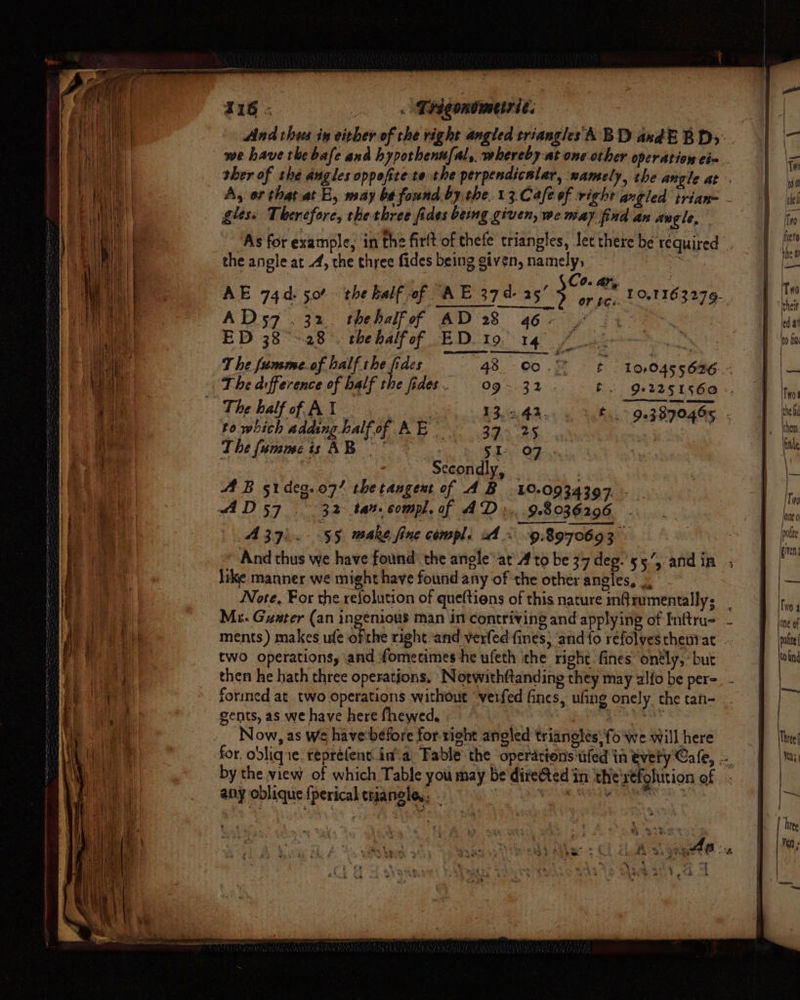 116 Trigonometrie.
And thus in either of the right angled triangles A BD and E BD,
we have the base and hypothenusal, whereby at one other operation ei-
ther of the angles opposite to the perpendicular, namely, the angle at
A, or that at E, may be found by the 13. Case of right angled trian-
gles. Therefore, the three sides being given, we may find an angle.
As for example, in the first of these triangles, let there be required
the angle at A, the three sides being given, namely,
AE 74d. 50' the half of AE 37d. 25' Co. ar. or sc. 10.1163279.
AD 57 . 32. the half of AD 28 46
ED 38 28 . the half of ED 19 14
The summe of half the sides 48 00 t 10,0455626
The difference of half the sides . 09 32 t . 9.2251560
The half of A I 13. 42. t.. 9.3870465
to which adding half of AE 37. 25
The summe is AB 51 07
Secondly,
A B 51 deg. 07' the tangent of A B 10.0934397.
AD 57 32 tan. compl. of AD 9.8036296
A 37. 55 make sine compl. A 9.8970693
And thus we have found the angle at A to be 37 deg. 55', and in
like manner we might have found any of the other angles.
Note, For the resolution of questions of this nature instrumentally;
Mr. Gunter (an ingenious man in contriving and applying of Instru-
ments) makes use of the right and versed sines, and so resolves them at
two operations, and sometimes he useth the right sines onely, but
then he hath three operations. Notwithstanding they may also be per-
formed at two operations without versed sines, using onely the tan-
gents, as we have here shewed.
Now, as we have before for right angled triangles, so we will here
for oblique represent in a Table the operations used in every Case,
by the view of which Table you may be directed in the resolution of
any oblique sperical triangle,